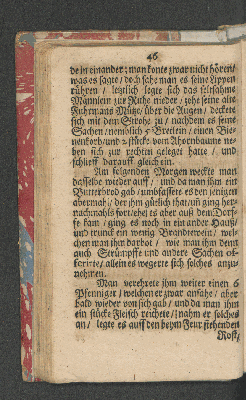 46
de in einander; man konte zwar nicht hören/
was es sagte / doch sahe man es seine Lippen
rühren / letzlich legte sich das seltsahme
Männlein zur Ruhe nieder / zohe seine alte
Fuhrmans Mütze/ über die Augen / deckete
sich mit dem Strohe zu / nachdem es seine
Sachen / nemblich 5 Bretlein / einen Bie-
nenkorb/und 2 stücke vom Ahornbaume ne-
ben sich zur rechten geleget hatte / und
schlieff darauff gleich ein.
Am folgenden Morgen weckte man
dasselbe wieder auff / und da man ihm ein
Butterbrod gab / umbfassete es den jenigen
abermahl / der ihm gütlich that/un ging her-
nachmahls fort/ehe es aber auß dem Dorf-
fe kam / ging es noch in ein ander Hauß/
und trunck ein wenig Brandtewein / wel-
chen man ihm darbot / wie man ihm denn
auch Strümpffe und andere Sachen of-
ferirte/ allein es wegerte sich solches anzu-
nehmen.
Man verehrete ihm weiter einen 6
Pfenniger / welchen er zwar anfahe / aber
bald wieder von sich gab / und da man ihm
ein stücke Fleisch reichete / nahm er solches
an / legte es auff den beym Feur stehenden
Rost/